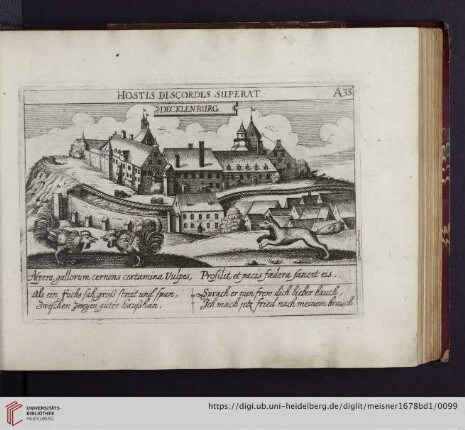 HOSTIS DISCORDES SUPERAT.
A35
DECKLENBURG.
Aspera gallorum cernens certamina Vulpes,
Prosilit, et pacis fœdera sancit eis.
Als ein fuchs sah groß streit und span,
Zwischen zweyen guter haußhan.
Sprach er nun frew dich lieber bauch,
Ich mach jetz fried nach meinem brauch.
UNIVERSITÄTS-
BIBLIOTHEK
HEIDELBERG
https://digi.ub.uni-heidelberg.de/diglit/meisner1678bd1/0099